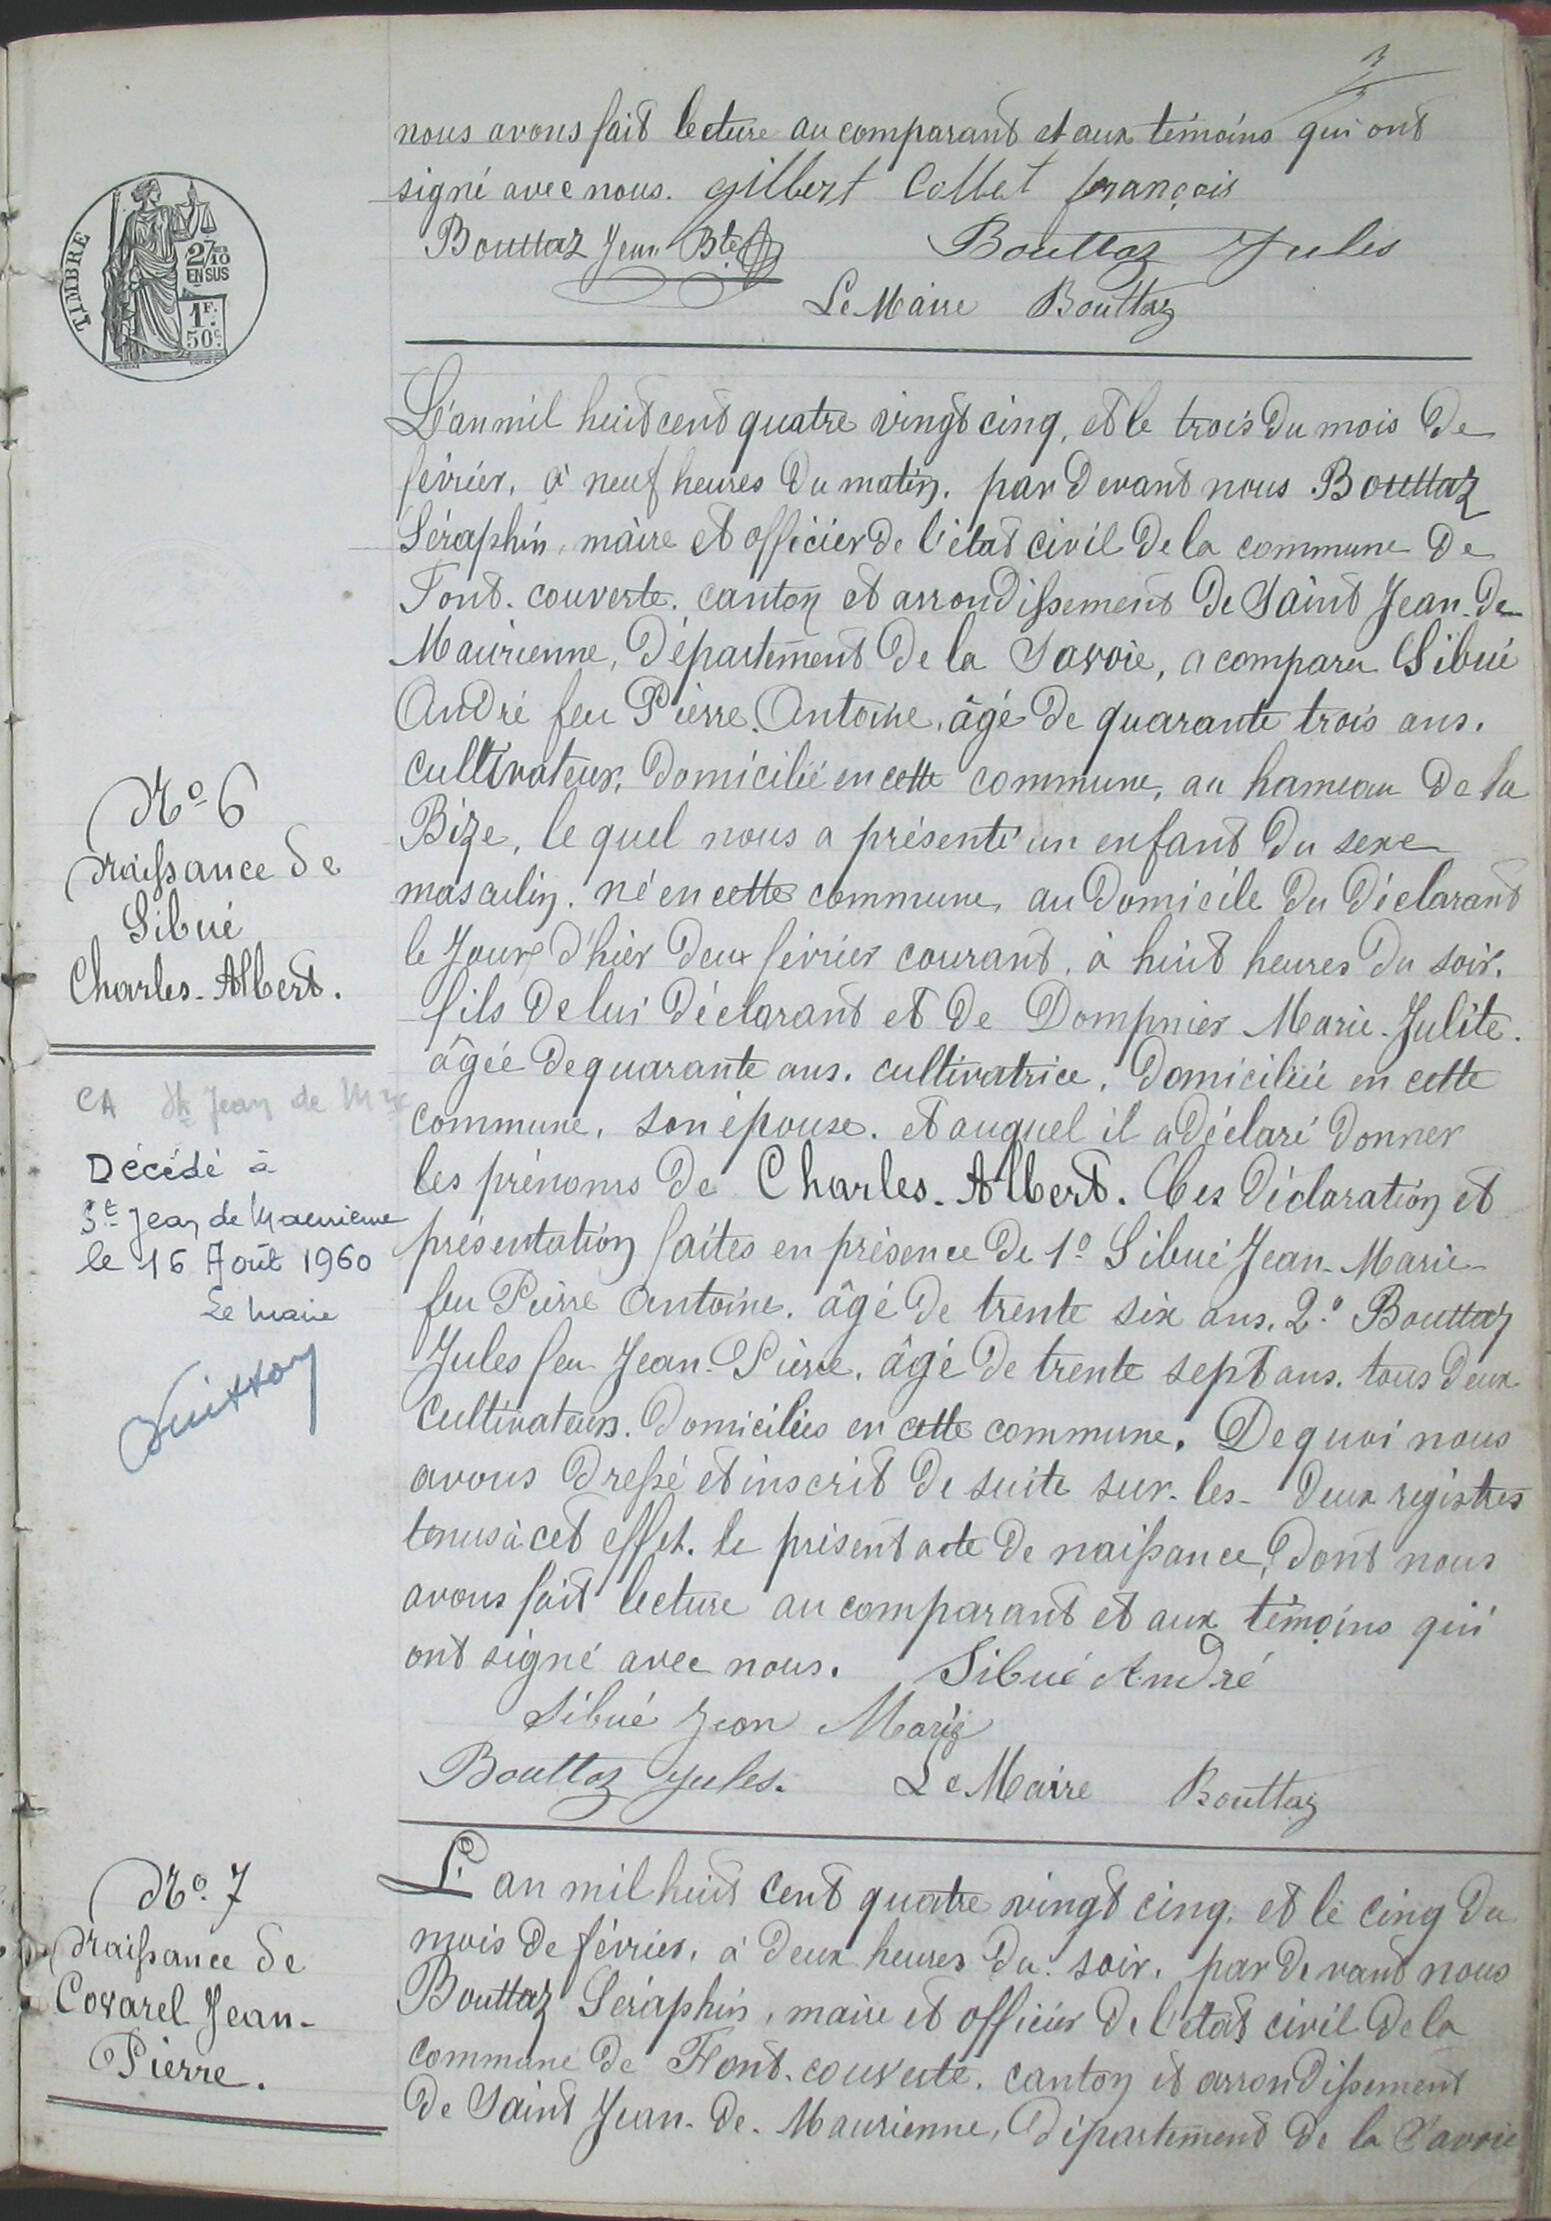 3
nous avons fait lecture au comparant et aux témoins qui ont
signé avec nous. Gilbert Collet françois
Bouttaz Jean Bte Bouttaz Jules
Le Maire Bouttaz
TIMBRE
2/10
EN SUS
1F.
50c.
L'an mil huit cent quatre vingt cinq, et le trois du mois de
février, à neuf heures du matin. par devant nous Bouttaz
Séraphin, maire et officier de l'état civil de la commune de
Font. couverte. canton et arrondissement de Saint Jean-de
Maurienne, Département de la Savoie, a comparu Sibué
André feu Pierre. Antoine, âgé de quarante trois ans.
cultivateur, domicilié en cette commune, au hameau de la
Bize, le quel nous a présenté un enfant du sexe
masculin. né en cette commune, au domicile du déclarant
le jour d'hier deux février courant, à huit heures du soir.
fils de lui déclarant et de Dompnier Marie-Julite.
âgée de quarante ans. cultivatrice, domiciliée en cette
commune, son épouse. et auquel il a déclaré donner
les prénoms de Charles-Albert. Ces déclaration et
présentation faites en présence de 1º Sibué Jean-Marie
feu Pierre Antoine. âgé de trente six ans. 2.º Bouttaz
Jules feu Jean-Pierre. âgé de trente sept ans. tous deux
cultivateurs. domiciliés en cette commune. De quoi nous
avons dressé et inscrit de suite sur-les- deux registres
tenus à cet effet. le présent acte de naissance, dont nous
avons fait lecture au comparant et aux témoins qui
ont signé avec nous. Sibué André
Sibué Jean Marie
Bouttaz Jules. Le Maire Bouttaz
Nº 6
Naissance de
Sibué
Charles-Albert.
CA St Jean de Mne
Décédé à
St Jean de Maurienne
le 16 Août 1960
Le Maire
L'an mil huit cent quatre vingt cinq. et le cinq du
mois de février, à deux heures du soir. par devant nous
Bouttaz Séraphin, maire et officier de l'état civil de la
commune de Font. couverte. canton et arrondissement
de Saint Jean-de-Maurienne, département de la Savoie
Nº 7
Naissance de
Covarel Jean-
Pierre.